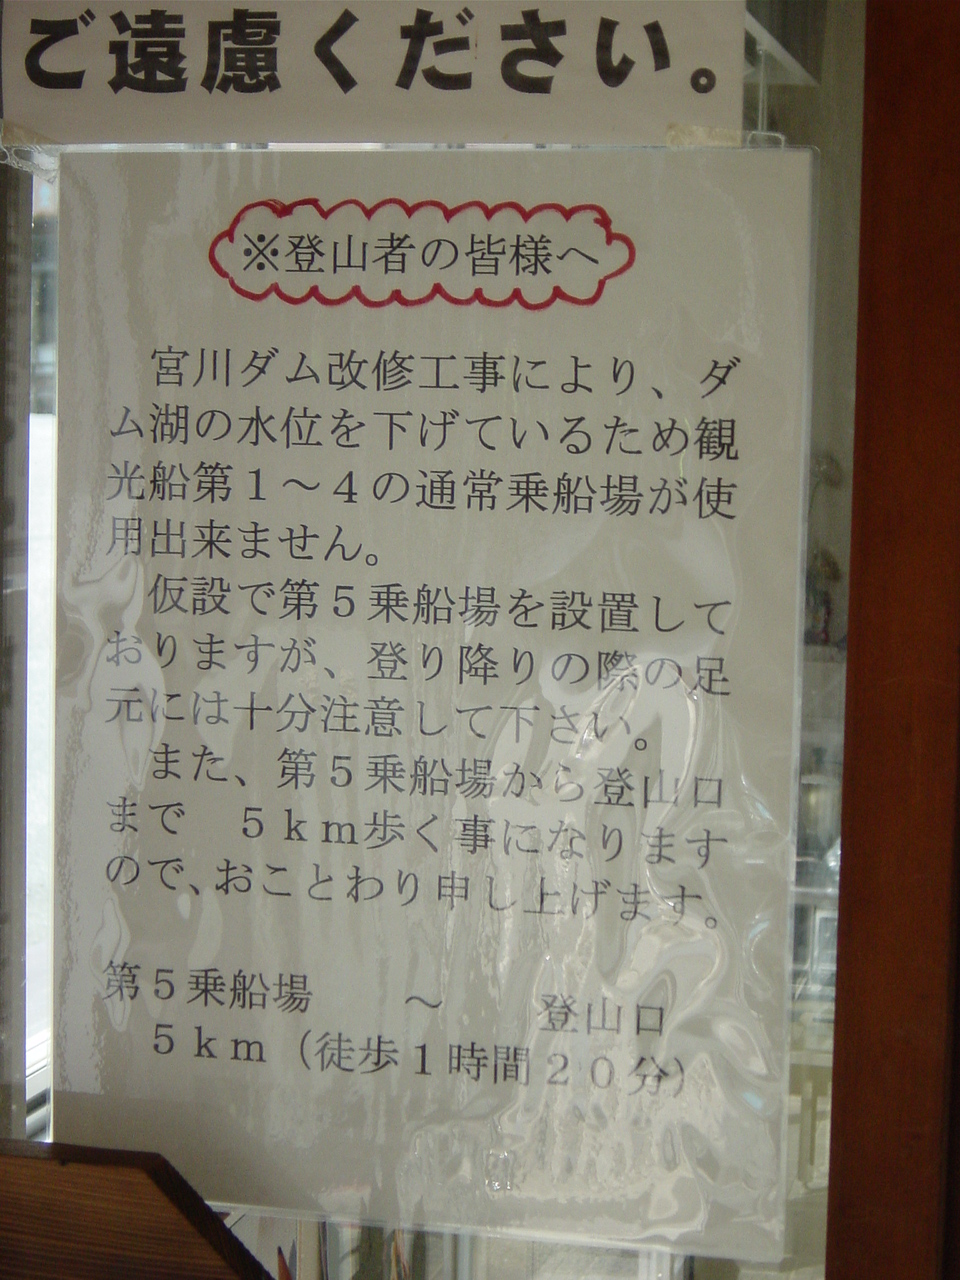 ご遠慮ください。
※登山者の皆様へ
宮川ダム改修工事により、ダ
ム湖の水位を下げているため観
光船第１～４の通常乗船場が使
用出来ません。
仮設で第５乗船場を設置して
おりますが、登り降りの際の足
元には十分注意して下さい。
また、第５乗船場から登山口
まで　５ｋｍ歩く事になります
ので、おことわり申し上げます。
第５乗船場　　～　　登山口
５ｋｍ（徒歩１時間２０分）